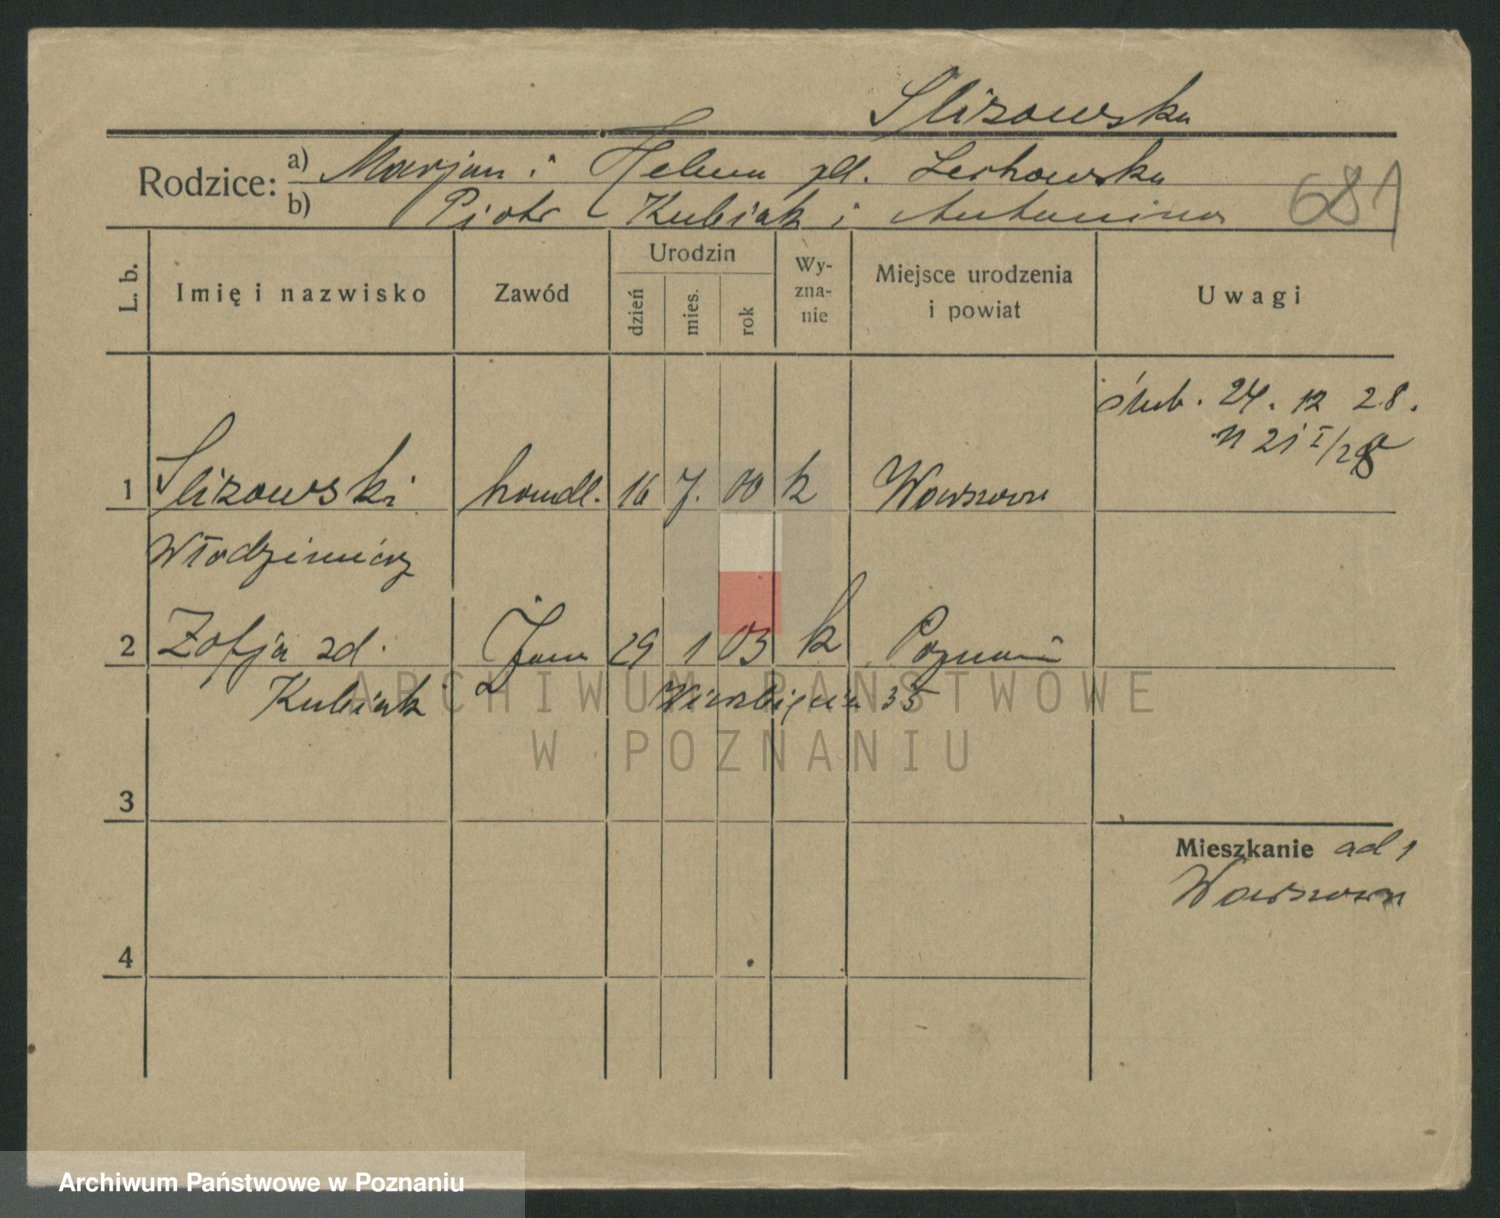 Slizowska
Rodzice: a) Marjan i Helena zd. Lechowska
b) Piotr Kubiak i Antonina
681
L. b. Imię i nazwisko Zawód Urodzin dzień mies. rok Wyznanie Miejsce urodzenia i powiat Uwagi
ślub. 24. 12 28.
1 Slizowski handl. 16 7. 00 k Warszawa
Włodzimierz
2 Zofja zd. Żona 29 1 03 k Poznań
Kubiak Wierzbięcia 35
ARCHIWUM PAŃSTWOWE
W POZNANIU
3
Mieszkanie ad 1
Warszawa
4
Archiwum Państwowe w Poznaniu